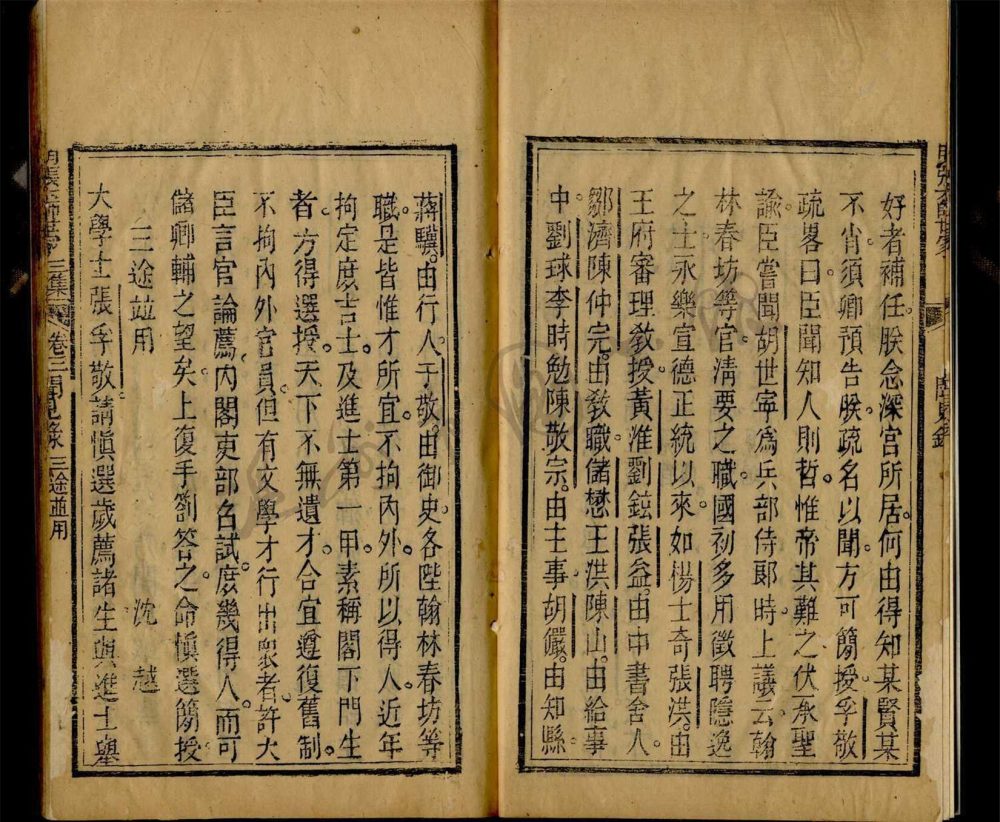 好者補任朕念深宮所居何由得知某賢某
不肖須卿預告朕疏名以聞方可簡授孚敬
疏畧曰臣聞知人則哲惟帝其難之伏承聖
諭臣嘗聞胡世寧爲兵部侍郞時上議云翰
林春坊等官淸要之職國初多用徵聘隱逸
之士永樂宣德正統以來如楊士奇張洪由
王府審理敎授黃淮劉鉉張益由中書舍人
鄒濟陳仲完由敎職儲懋王洪陳山由給事
中劉球李時勉陳敬宗由主事胡儼由知縣
蔣驥由行人于敬由御史各陞翰林春坊等
職是皆惟才所宜不拘內外所以得人近年
拘定庶吉士及進士第一甲素稱閣下門生
者方得選授天下不無遺才合宜遵復舊制
不拘內外官員但有文學才行出衆者許大
臣言官論薦內閣吏部名試庶幾得人而可
儲卿輔之望矣上復手劄答之命愼選簡授
三途並用
沈越
大學士張孚敬請愼選歲薦諸生與進士舉
三集
卷三聞見錄
三途並用